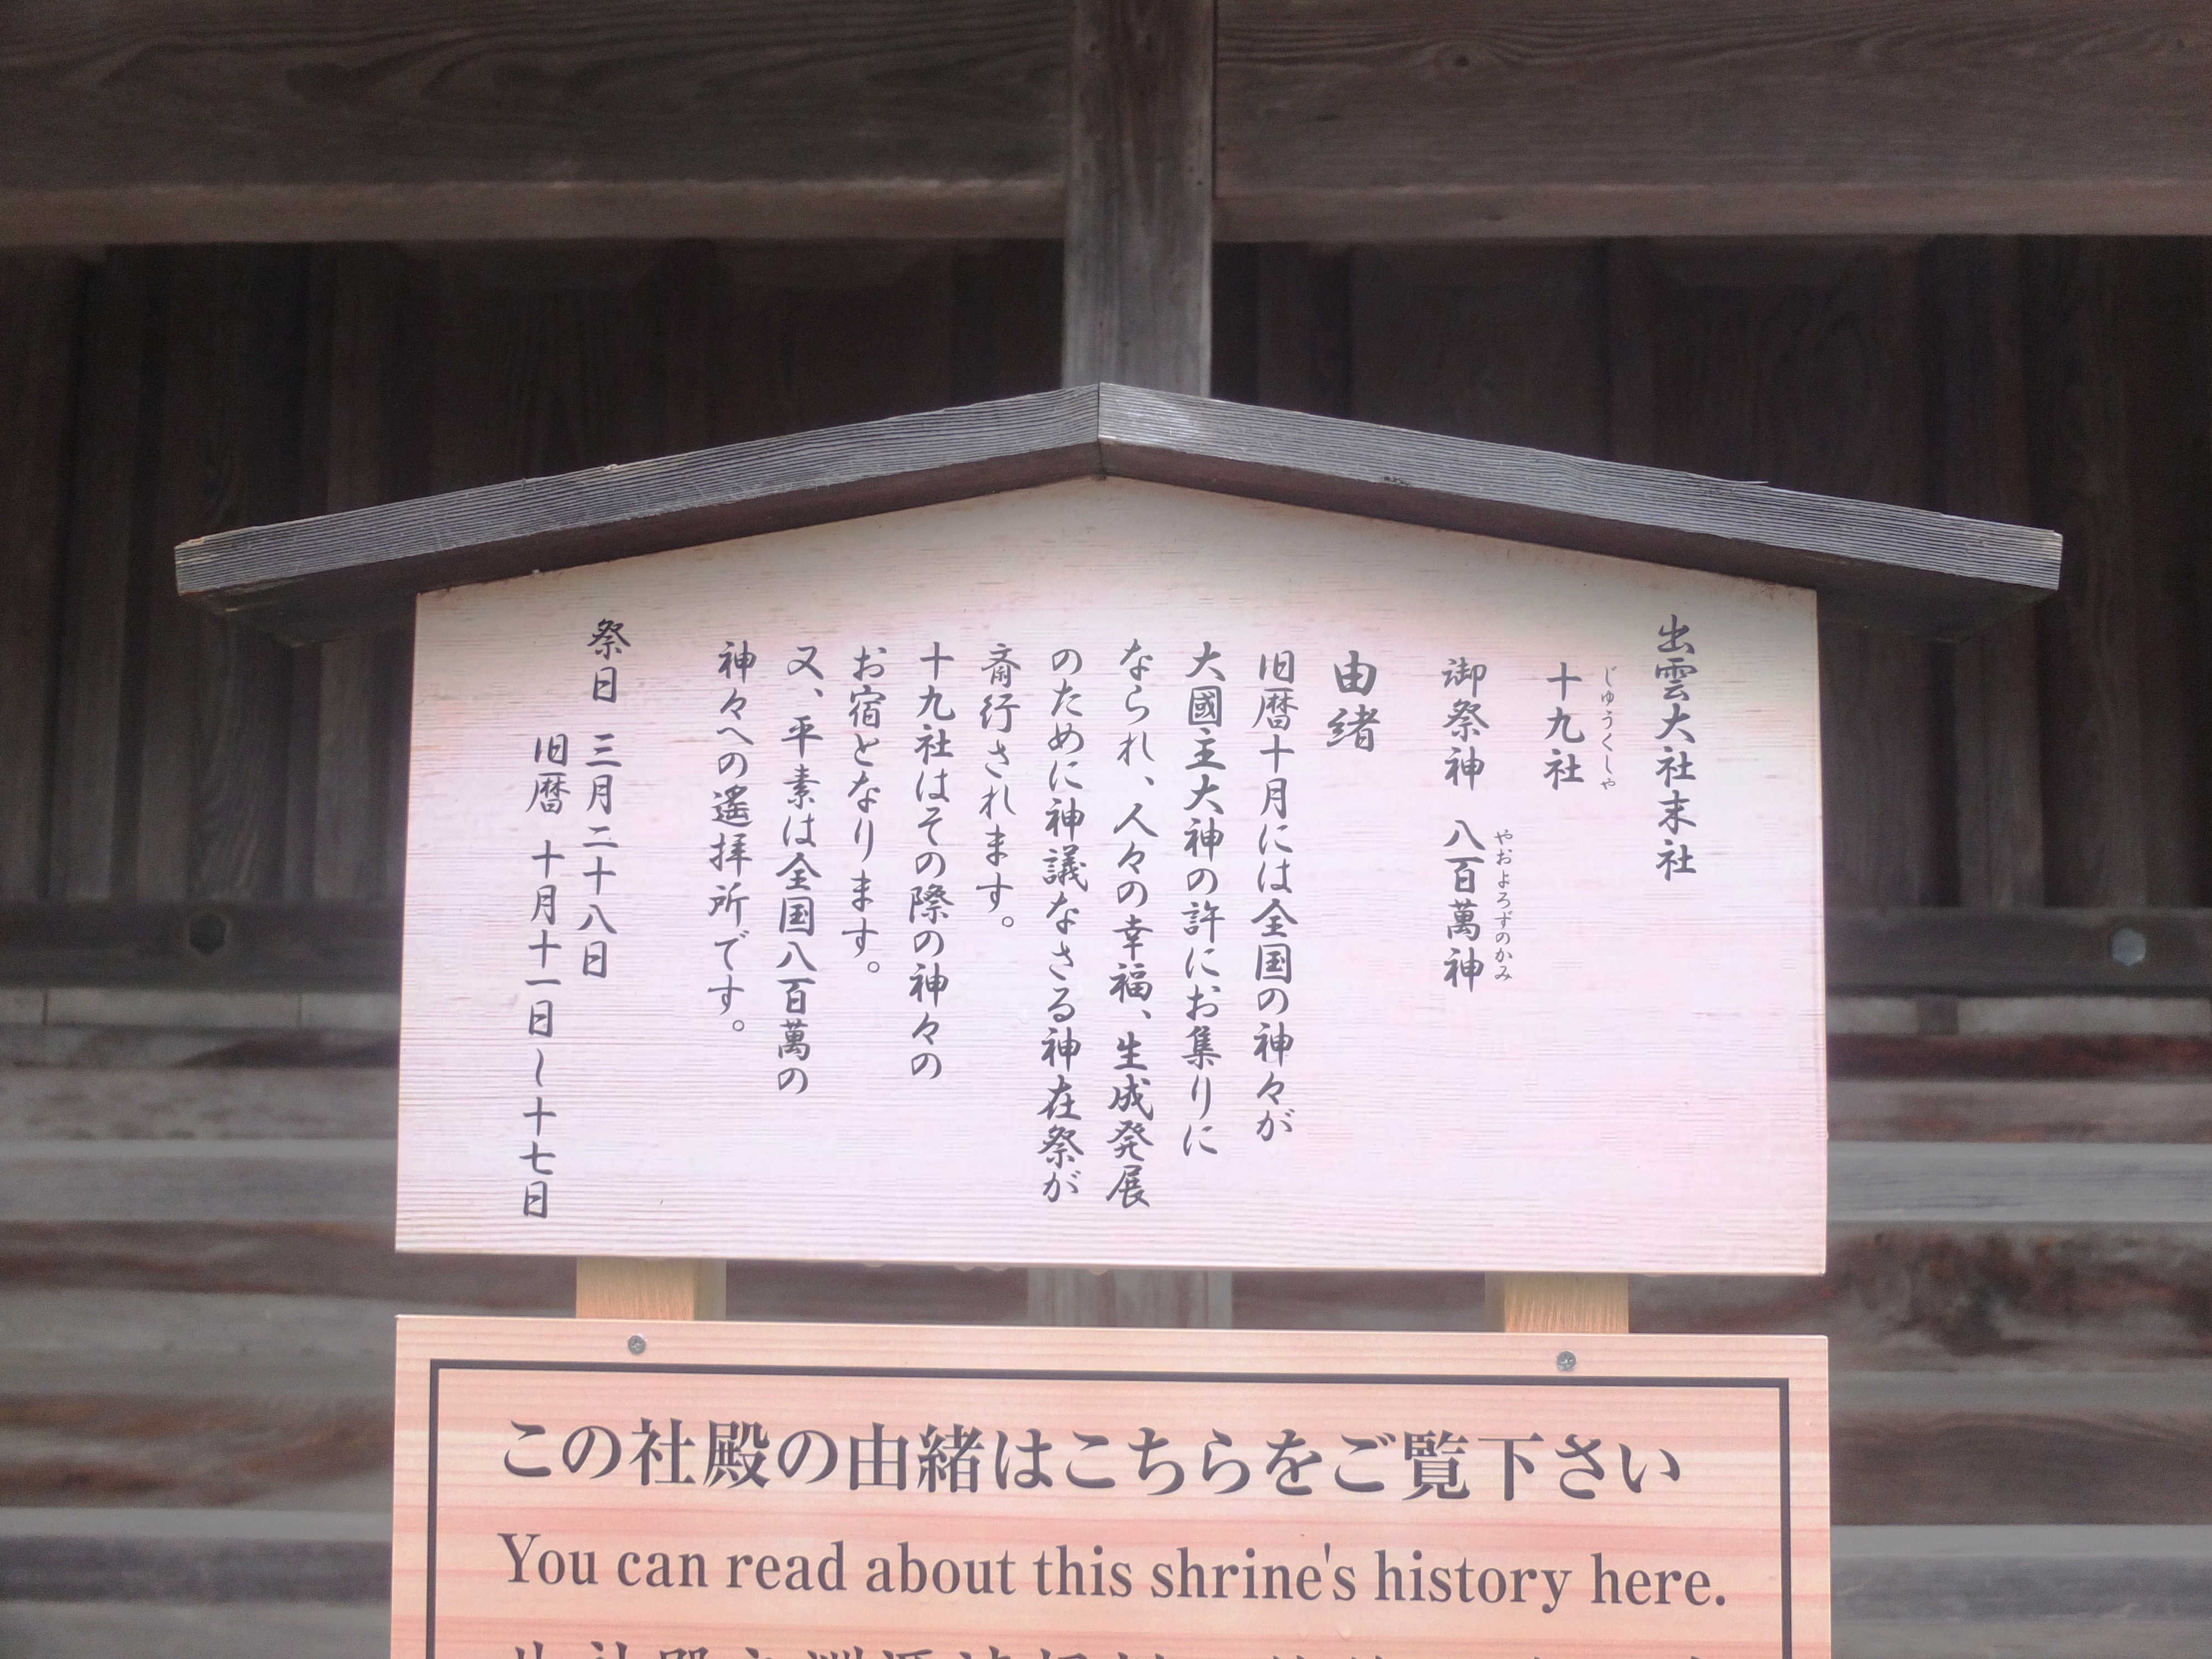 出雲大社末社
じゅうくしゃ
十九社
やおよろずのかみ
御祭神 八百萬神
由緒
旧暦十月には全国の神々が
大國主大神の許にお集りに
なられ、人々の幸福、生成発展
のために神議なさる神在祭が
斎行されます。
十九社はその際の神々の
お宿となります。
又、平素は全国八百萬の
神々への遙拝所です。
祭日 三月二十八日
旧暦 十月十一日~十七日
この社殿の由緒はこちらをご覧下さい
You can read about this shrine's history here.